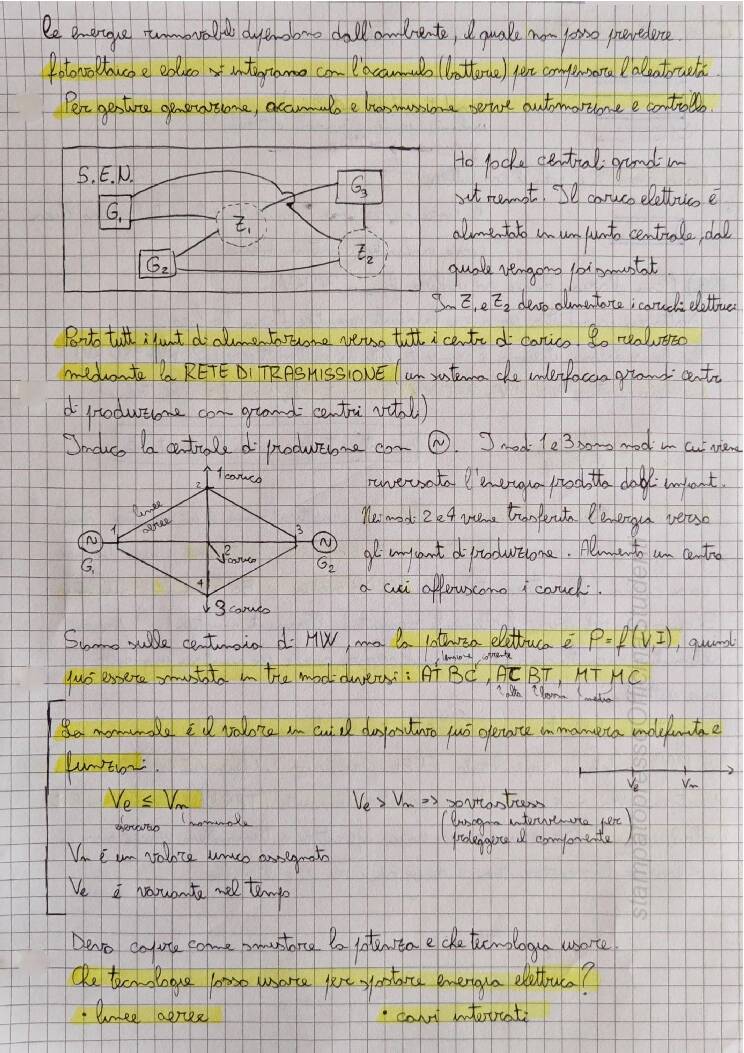 Le energie rinnovabili dipendono dall'ambiente, il quale non posso prevedere.
fotovoltaico e eolico si integrano con l'accumulo (batterie) per compensare l'aleatorietà.
Per gestire generazione, accumulo e trasmissione serve automazione e controllo.
S.E.N.
G1
G2
Z1
G3
Z2
Ho poche centrali grandi in
siti remoti. Il carico elettrico é
alimentato in un punto centrale, dal
quale vengono poi smistati.
In Z1 e Z2 devo alimentare i carichi elettrici
Porto tutti i punti di alimentazione verso tutti i centri di carico. Lo realizzo
mediante la RETE DI TRASMISSIONE (un sistema che interfaccia grandi centri
di produzione con grandi centri vitali)
Indico la centrale di produzione con N. I nodi 1 e 3 sono nodi in cui viene
riversata l'energia prodotta dagli impianti.
Nei nodi 2 e 4 viene trasferita l'energia verso
gli impianti di produzione. Alimento un centro
a cui afferiscono i carichi.
1 carico
2
linee aeree
1
3
N
G1
N
G2
2 carico
4
3 carico
Siamo sulle centinaia di MW, ma la potenza elettrica é P = f(V,I), quindi
tensione corrente
può essere smistata in tre modi diversi: AT BC, AC BT, MT MC
alta bassa media
La nominale é il valore in cui il dispositivo può operare in maniera indefinita e
funzioni.
Ve Vn
Ve ≤ Vn
esercizio nominale
Ve > Vn => sovrastress
(bisogna intervenire per
proteggere il componente)
Vn é un valore unico assegnato
Ve é variante nel tempo
Devo capire come smistare la potenza e che tecnologia usare.
Che tecnologie posso usare per spostare energia elettrica?
• linee aeree • cavi interrati